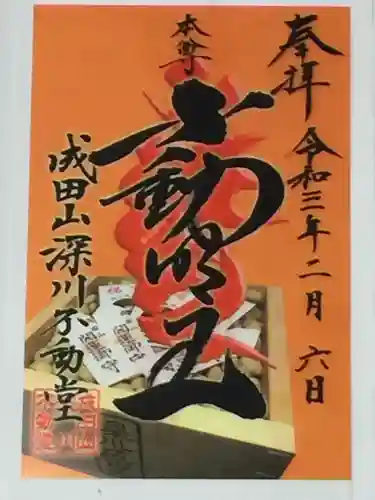 奉拝
令和三年二月六日
本尊
不動明王
成田山深川不動堂